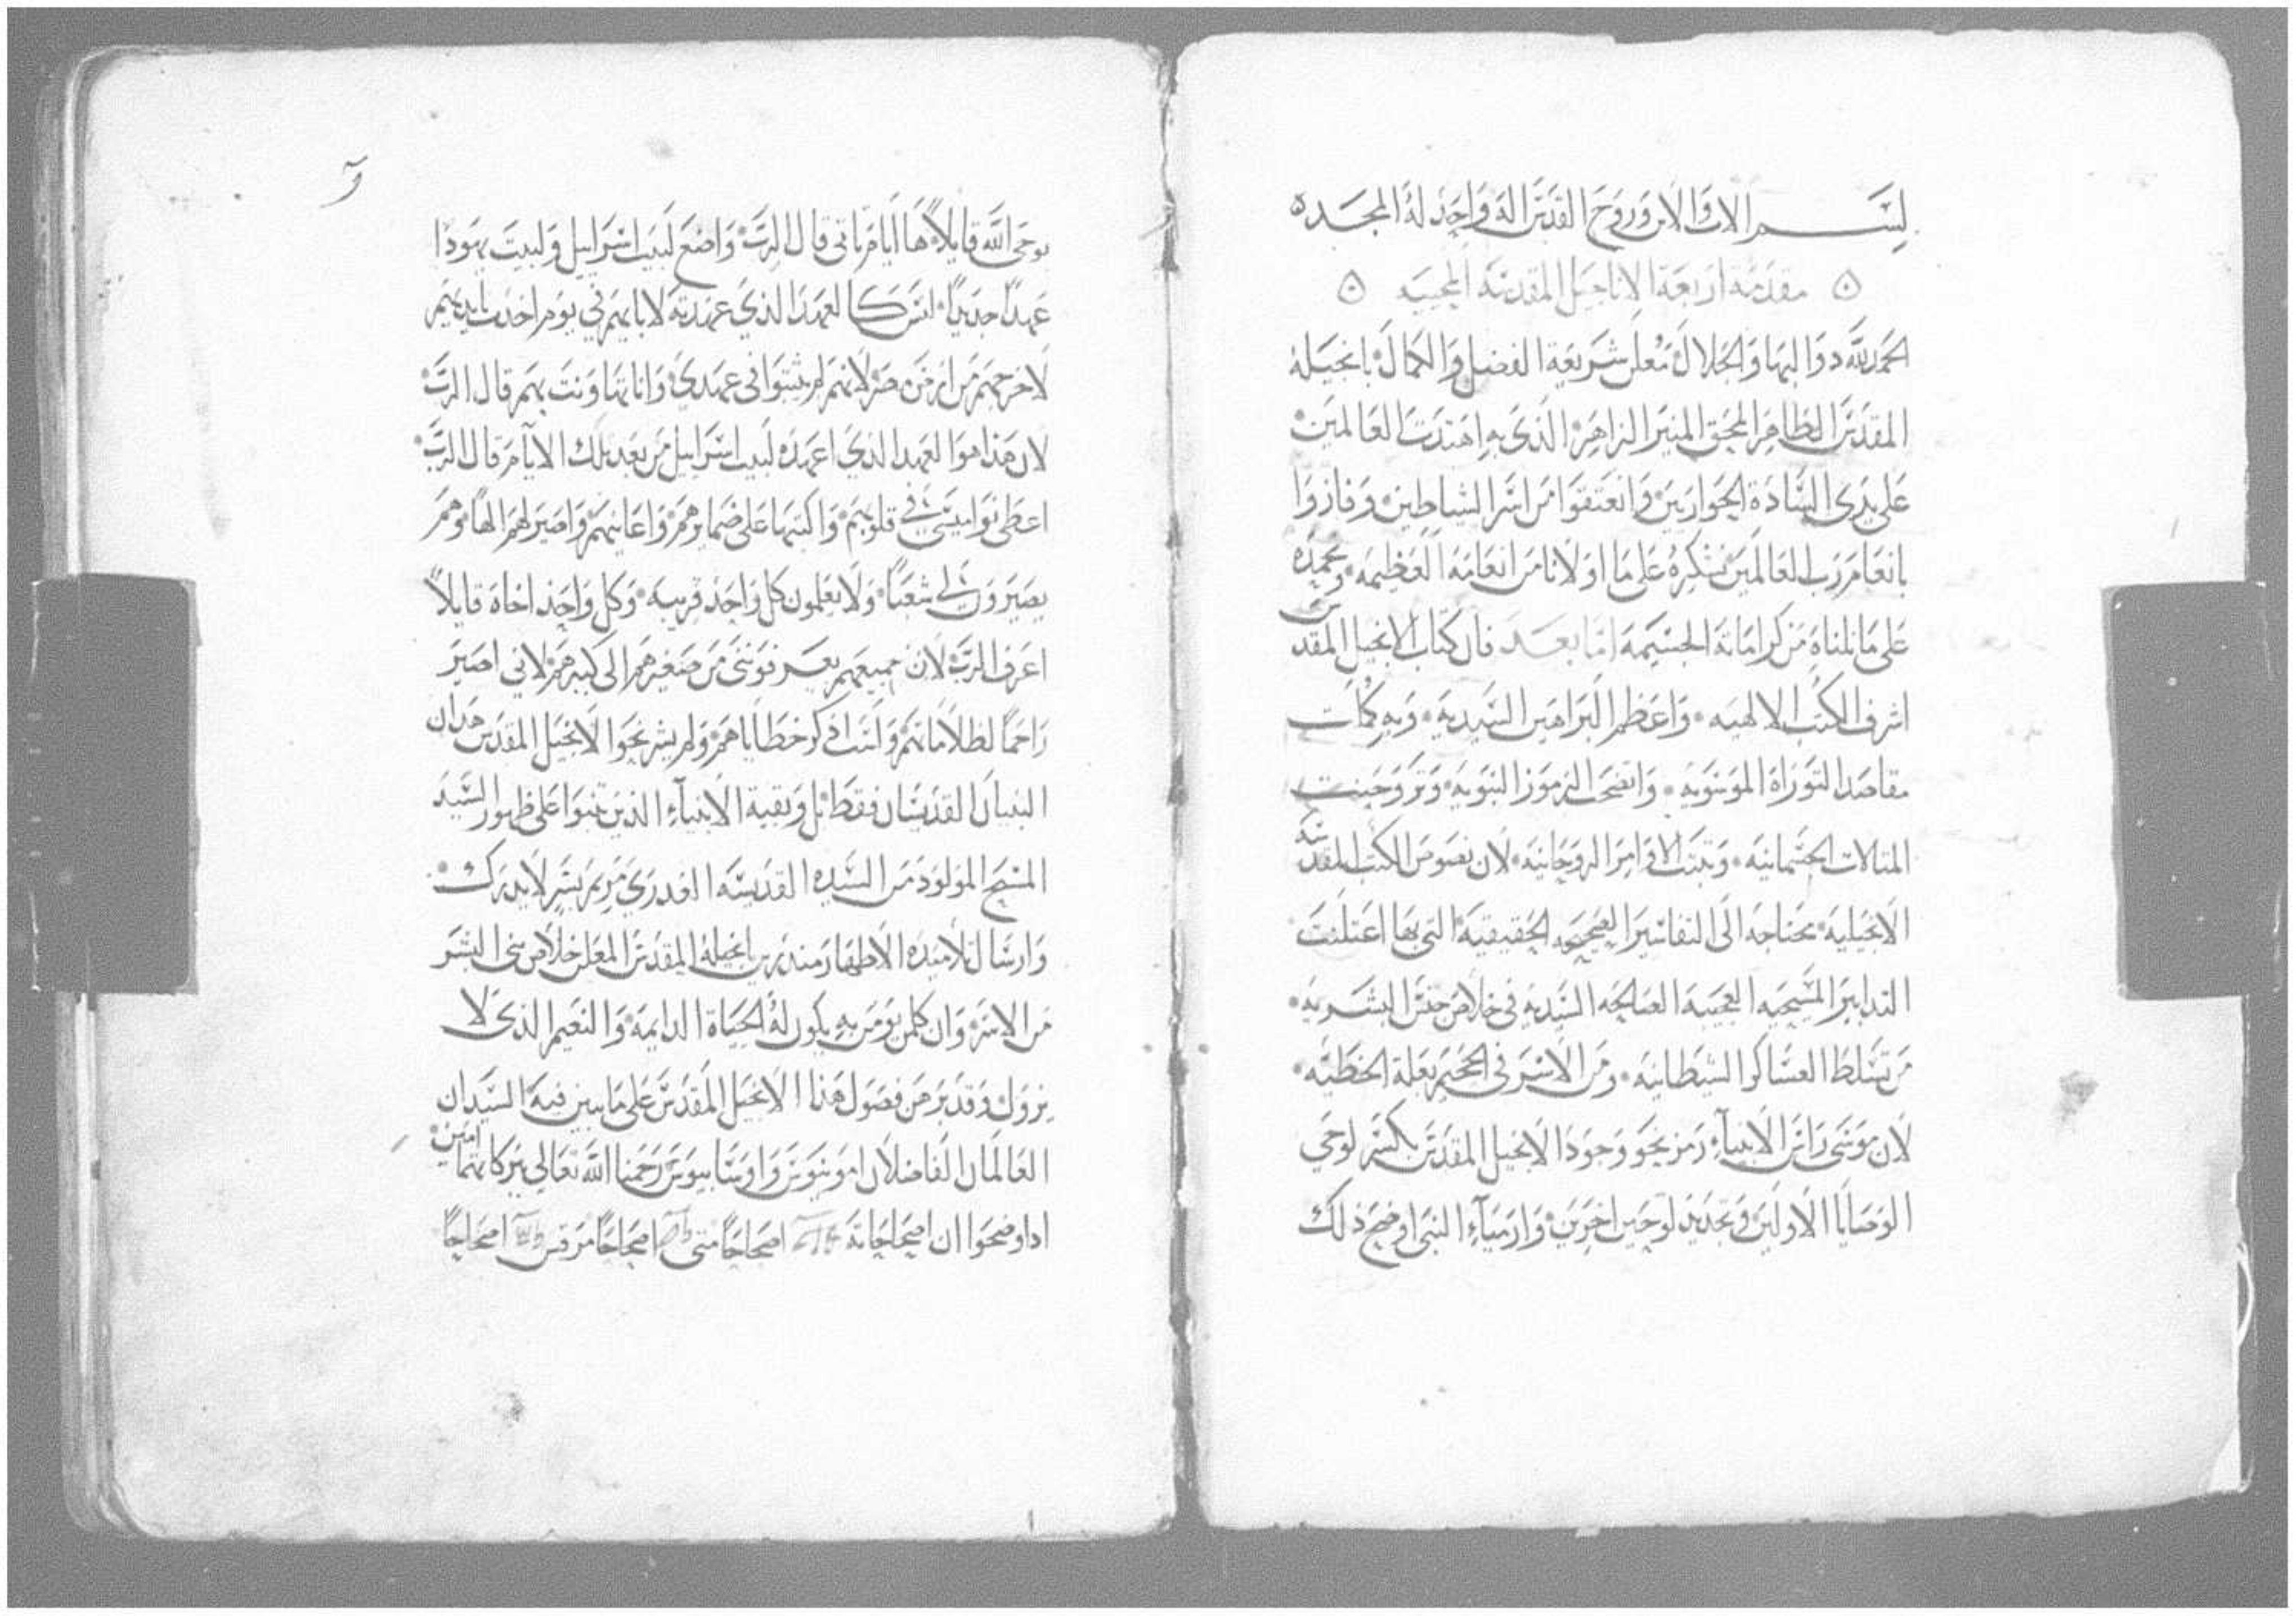 بسم الاب والابن وروح القدس اله واحد له المجد ه
مقدمة اربعة الاناجيل المقدسه المحييه
الحمد لله دو البها والجلال معلن شريعة الفضل والكمال بانجيله
المقدس الطاهر المحق المنير الزاهر الذي به اهتدت العالمين
على يدي الساده الحواريين وانعتقوا من اسر الشياطين وفازوا
بانعام رب العالمين نشكره على ما اولانا من انعامه العظيمه ونحمده
على ما نلناه من كراماته الجسيمه اما بعد فان كتاب الانجيل المقدس
اشرف الكتب الالهيه واعظم البراهين السيديه وبه كملت
مقاصد التوراة الموسويه واتضحت الرموز النبويه وتروحنت
المثالات الجسمانيه وثبتت الاوامر الروحانيه لان نصوص الكتب المقدسه
الانجيليه محتاجه الى التفاسير الصحيحه الحقيقية التي بها اعتلنت
التدابير المسيحيه العجيبه الصالحه السيديه في خلاص جنس البشريه
من تسلط العساكر الشيطانيه ومن الاسر في الجحيم بعلة الخطيه
لان موسى راس الانبياء رمز نحو وجود الانجيل المقدس بكسر لوحي
الوصايا الاولين وتجديد لوحين اخرين وارمياء النبي اوضح ذلك
بوحي الله قايلا ها ايام تاتي قال الرب واضع لبيت اسراييل ولبيت يهودا
عهدا جديدا ليس كالعهد الذي عهدته لابايهم في يوم اخدت بايديهم
لاخرجهم من ارض مصر لانهم لم يثبتوا في عهدي وانا تهاونت بهم قال الرب
لان هذا هو العهد الذي اعهده لبيت اسراييل من بعد تلك الايام قال الرب
اعطي نواميسي في قلوبهم واكتبها على ضمايرهم واعاينهم واصير لهم الها وهم
يصيرون لي شعبا ولا يعلمون كل واحد قريبه وكل واحد اخاه قايلا
اعرف الرب لان جميعهم يعرفونني من صغيرهم الى كبيرهم لاني اصير
راحما لظلاماتهم ولست اذكر خطاياهم ولم يشر نحو الانجيل المقدس هدان
النبيان القديسان فقط بل وبقية الانبياء الذين تنبوا على ظهور السيد
المسيح المولود من السيده القديسه العدري مريم بشر لا يدرك
وارسال تلاميده الاطهار منذرين بانجيله المقدس المعلن خلاص بني البشر
من الاسر وان كلمن يؤمن به يكون له الحياة الدايمه والنعيم الذي لا
يزول وقد بر من فصول هذا الانجيل المقدس على ما بين فيه السيدان
العالمان الفاضلان امونيوس واوسابيوس رحمنا الله تعالى ببركاتهما امين
ادا وضحوا ان اصحاحاته اصحاحا متى اصحاحا مرقس اصحاحا